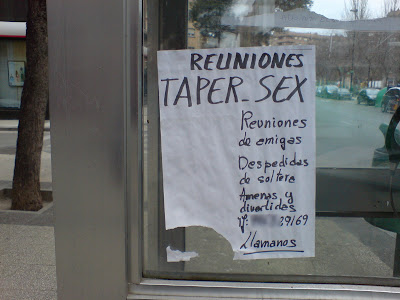 REUNIONES
TAPER_SEX
Reuniones
de amigas
Despedidas
de soltera
Amenas y
divertidas
39169
Llamanos